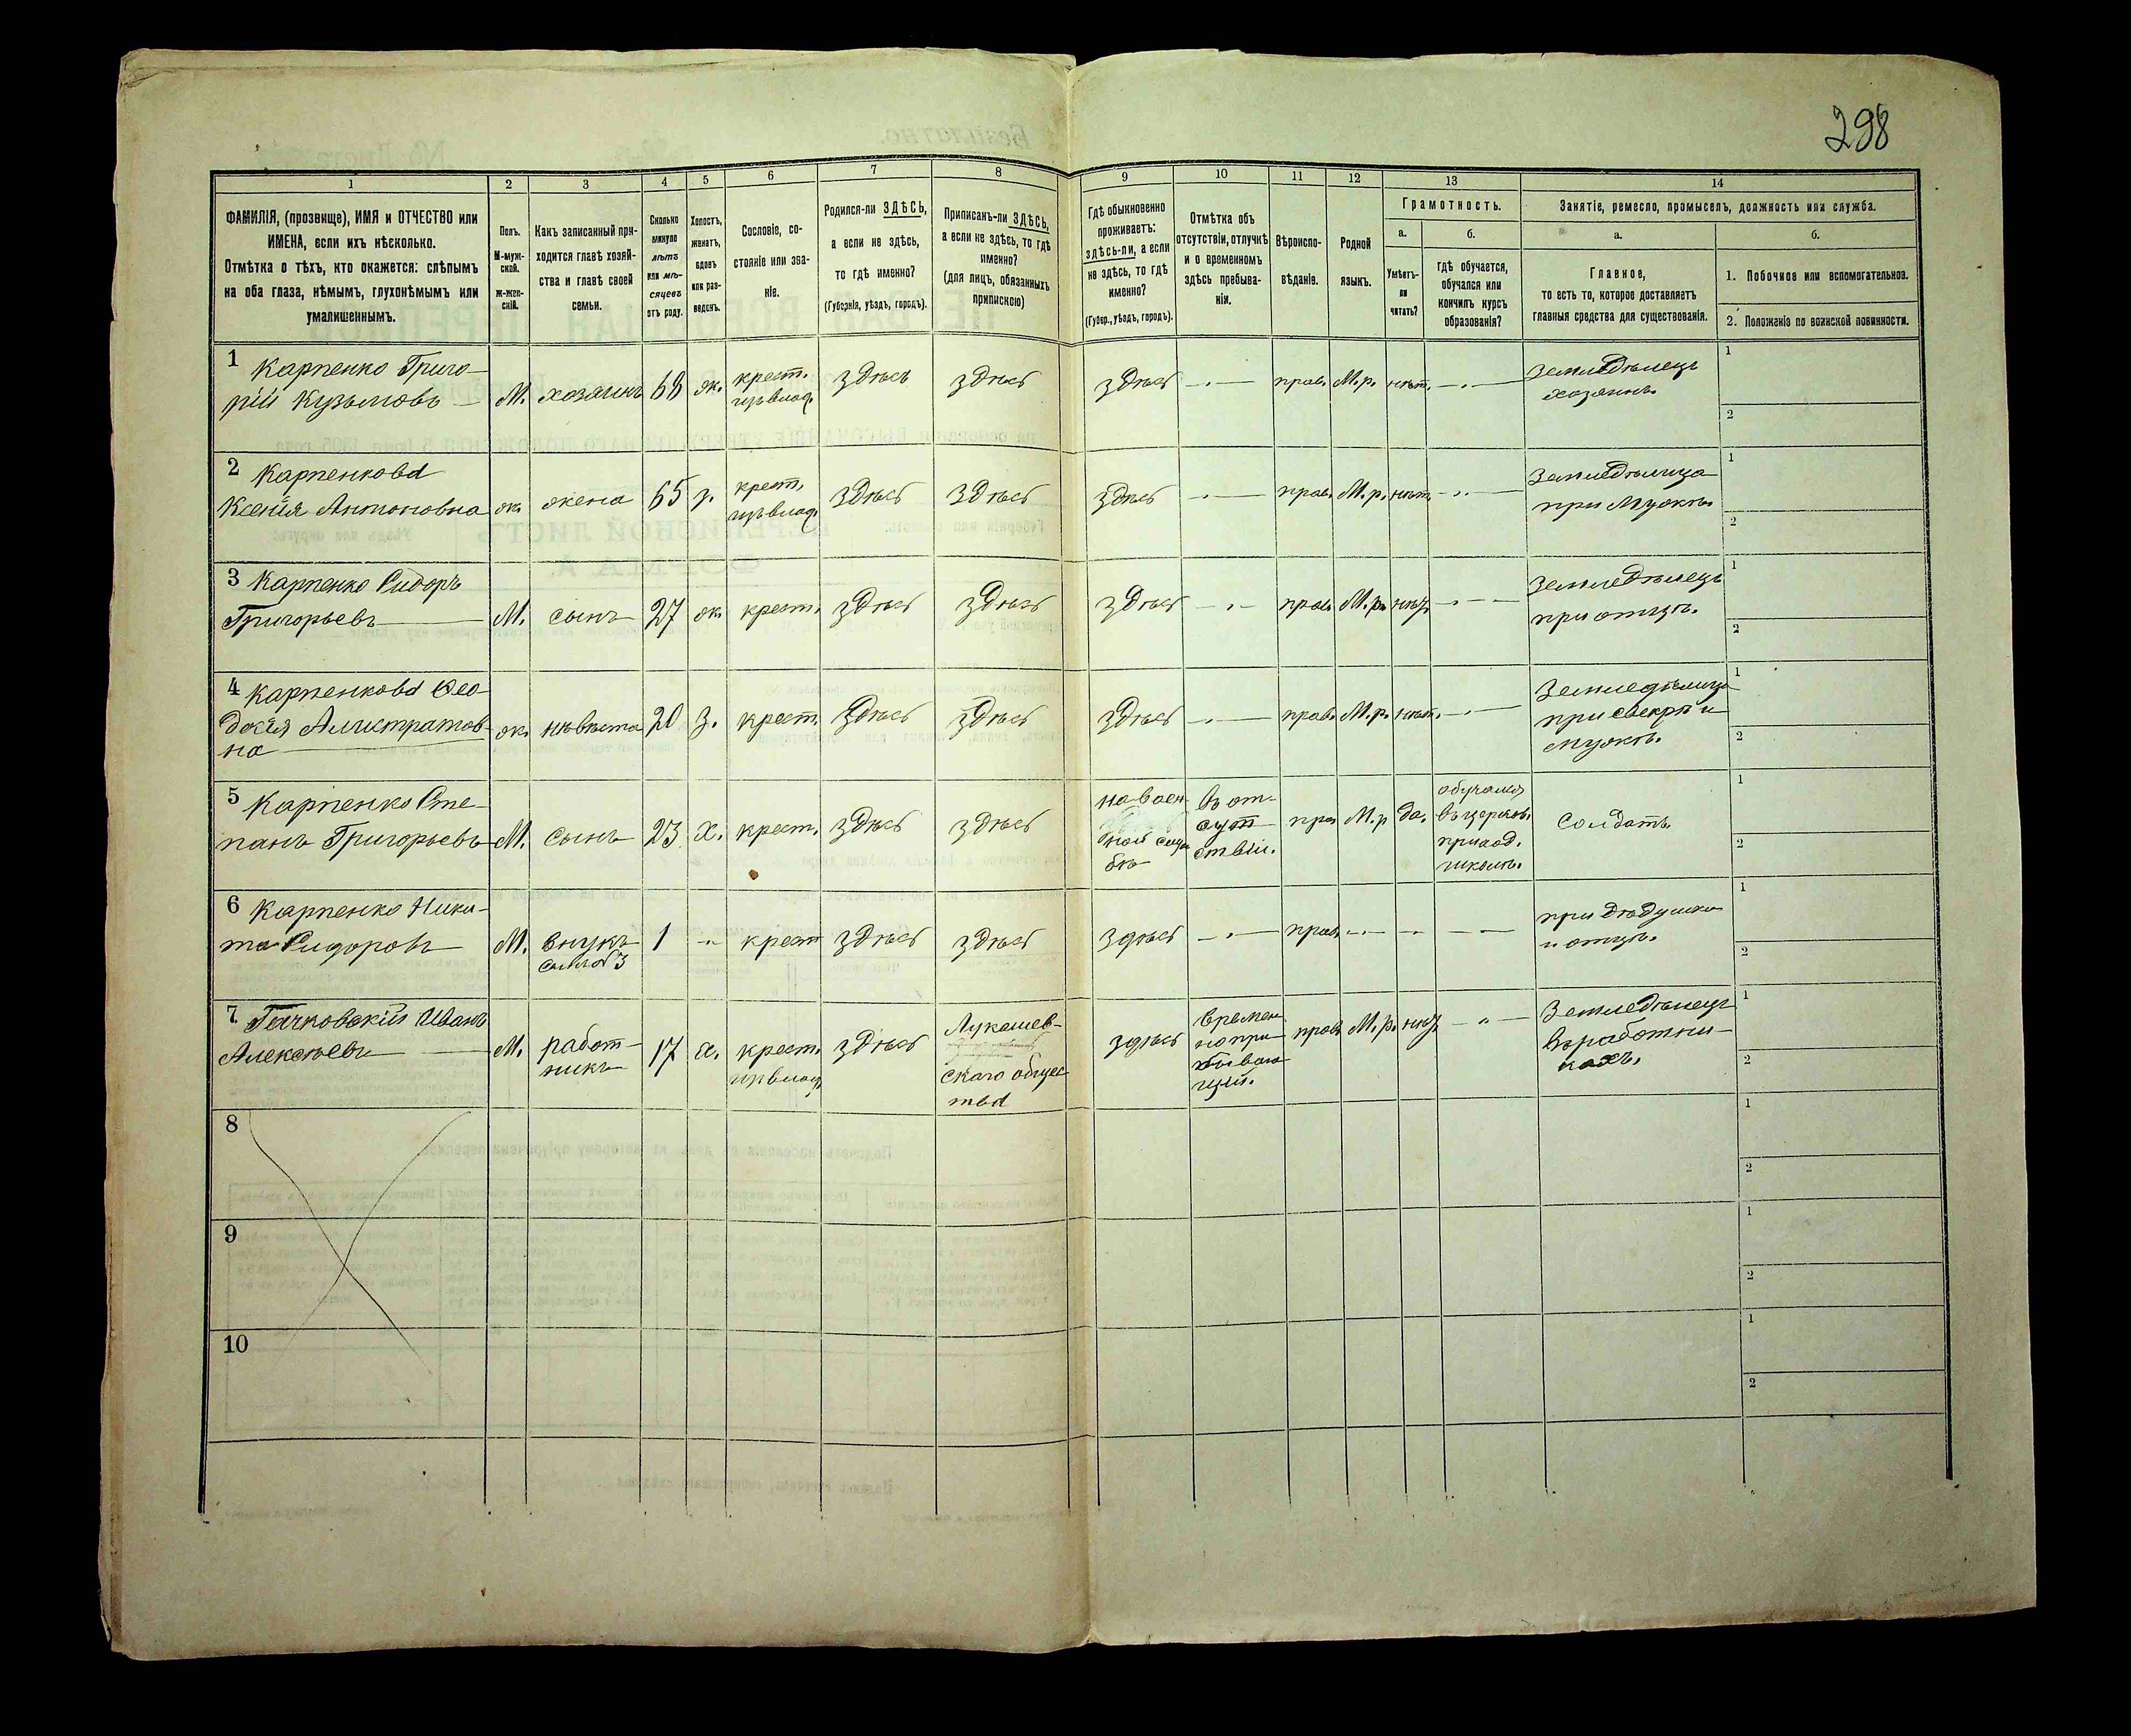 298
1
2
3
4
5
6
7
8
9
10
11
12
13
14
ФАМИЛІЯ, (прозвище), ИМЯ и ОТЧЕСТВО или
ИМЕНА, если ихъ нѣсколько.
Отмѣтка о тѣхъ, кто окажется: слѣпымъ
на оба глаза, нѣмымъ, глухонѣмымъ или
умалишеннымъ.
Полъ.
М-муж-
ской.
Ж-жен-
скій.
Какъ записанный при-
ходится главѣ хозяй-
ства и главѣ своей
семьи.
Сколько
минуло
лѣтъ
или мѣ-
сяцевъ
отъ роду.
Холостъ,
женатъ,
вдовъ
или раз-
веденъ.
Сословіе, со-
стояніе или зва-
ніе.
Родился-ли ЗДѢСЬ,
а если не здѣсь,
то гдѣ именно?
(Губернія, уѣздъ, городъ).
Приписанъ-ли ЗДѢСЬ,
а если не здѣсь, то гдѣ
именно?
(для лицъ, обязанныхъ
припискою)
Гдѣ обыкновенно
проживаетъ:
здѣсь-ли, а если
не здѣсь, то гдѣ
именно?
(Губер., уѣздъ, городъ).
Отмѣтка объ
отсутствіи, отлучкѣ
и о временномъ
здѣсь пребыва-
ніи.
Вѣроиспо-
вѣданіе.
Родной
языкъ.
Грамотность.
а.
б.
Умѣетъ-
ли
читать?
гдѣ обучается,
обучался или
кончилъ курсъ
образованія?
Занятіе, ремесло, промыселъ, должность или служба.
а.
б.
Главное,
то есть то, которое доставляетъ
главныя средства для существованія.
1. Побочное или вспомогательное.
2. Положеніе по воинской повинности.
1 Карпенко Григо-
рій Кузьмовъ М. хозяинъ 68 ж. крест. здѣсь здѣсь здѣсь прав. М.р. нѣт. Земледѣлецъ
хозяинъ.
1
2
2 Карпенкова
Ксенія Антоновна ж. жена 65 з. крест. здѣсь здѣсь здѣсь прав. М.р. нѣт. Земледѣлица
при Мужѣ.
1
2
3 Карпенко Сидоръ
Григорьевъ М. сынъ 27 ж. крест. здѣсь здѣсь здѣсь прав. М.р. нѣт. Земледѣлецъ
при отцѣ.
1
2
4 Карпенкова Ѳео-
докія Алистратов-
на ж. невѣста 20 з. крест. здѣсь здѣсь здѣсь прав. М.р. нѣт. Земледѣлица
при свекрѣ и
мужѣ.
1
2
5 Карпенко Сте-
панъ Григорьевъ М. сынъ 23 х. крест. здѣсь здѣсь
на воен-
ной служ
бѣ
въ от-
сут
ствіи.
прав М.р да.
обучался
въ церков.
приход.
школѣ.
Солдатъ.
1
2
6 Карпенко Ники-
та Сидоровъ М. внукъ 1 крест здѣсь здѣсь здѣсь прав.
сынъ № 3
при дѣдушкѣ
и отцѣ.
1
2
7 Иванъ
Алексѣевъ М. работ-
никъ 17 х. крест. здѣсь
Лукашев-
скаго общес
тва
здѣсь
времен
но при
бываю
щій.
прав. М.р. нѣт.
Земледѣлецъ
въ работни-
кахъ.
1
2
8
1
2
9
1
2
10
1
2